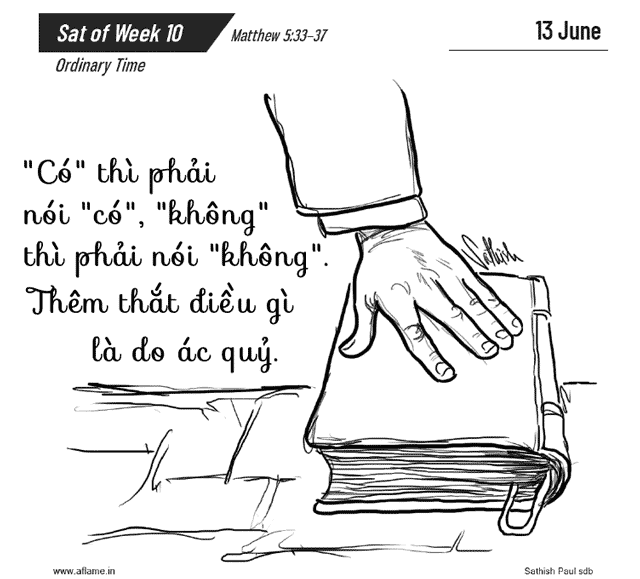 Sat of Week 10
Matthew 5:33–37
13 June
Ordinary Time
"Có" thì phải
nói "có", "không"
thì phải nói "không".
Thêm thắt điều gì
là do ác quỷ.
Sathish
www.aflame.in
Sathish Paul sdb